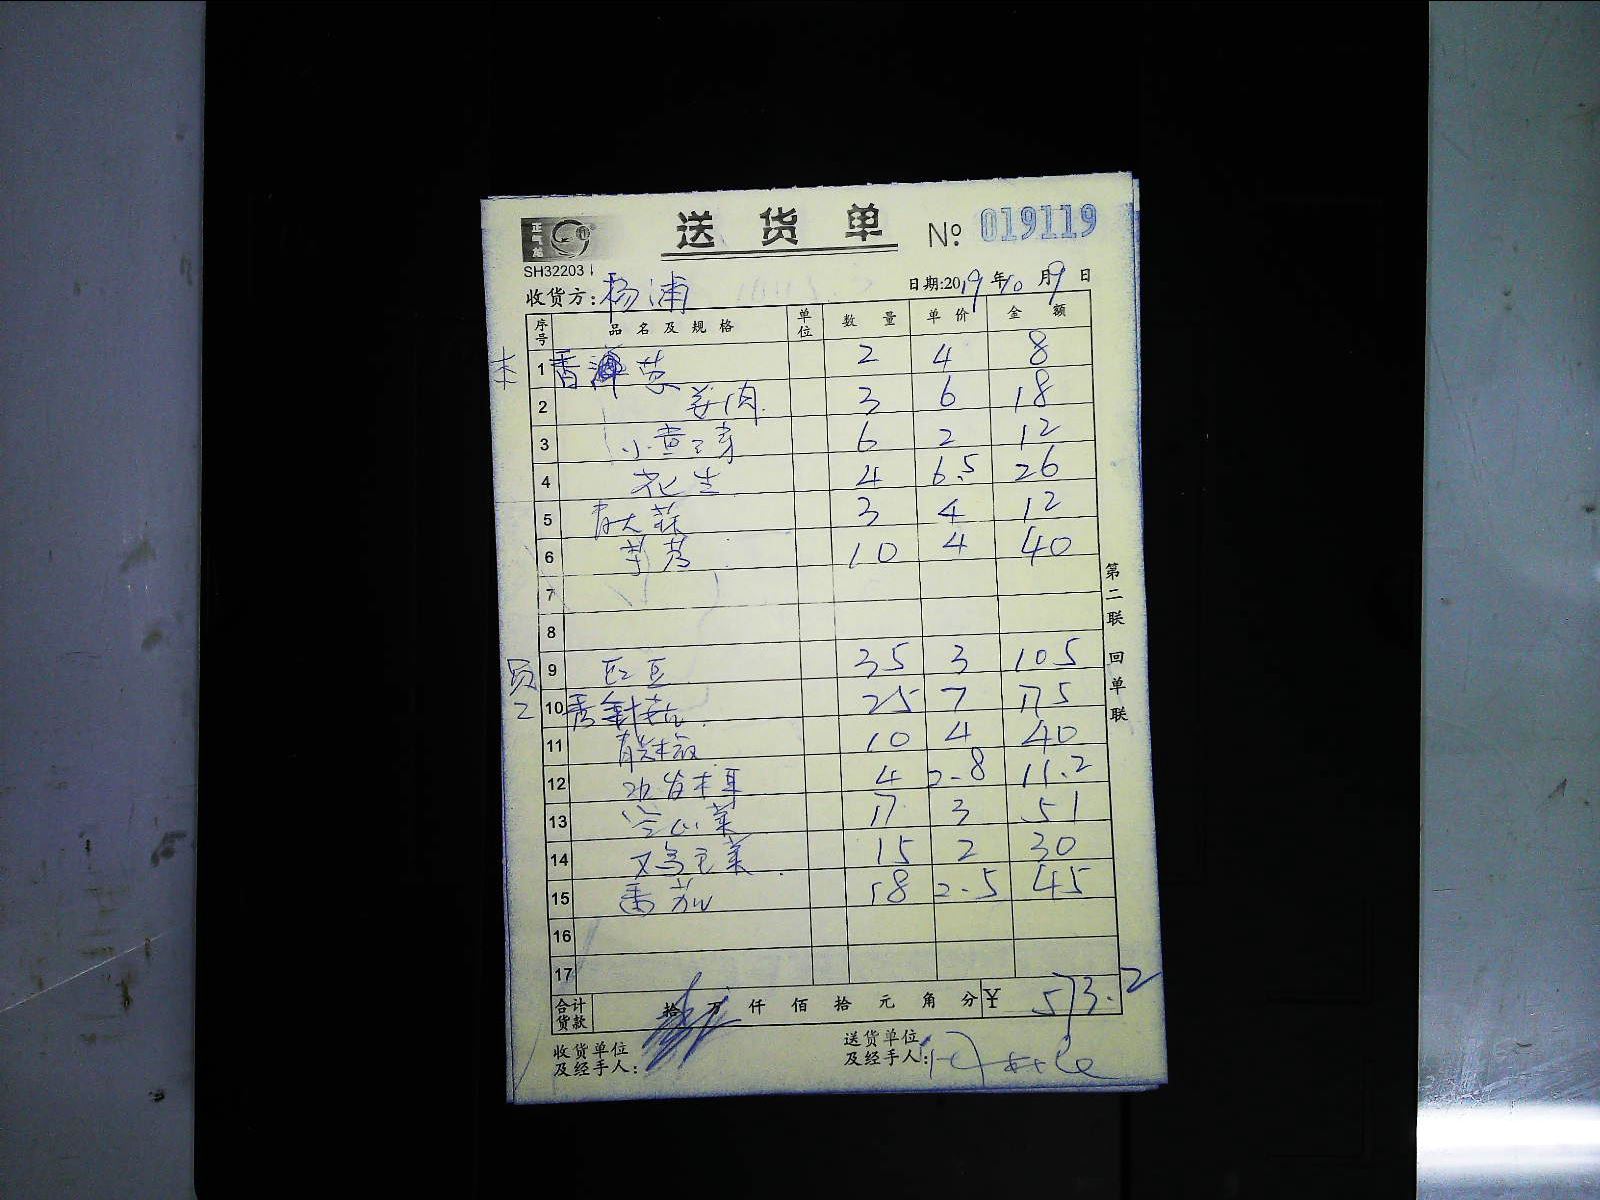 正气龙
送货单 № 019119
SH32203
收货方: 杨浦 日期:2019年10月9日
序号 品名及规格 单位 数量 单价 金额
1 香葱 2 4 8
2 姜肉 3 6 18
3 小黄豆芽 6 2 12
4 花生 4 6.5 26
5 青大蒜 3 4 12
6 芋艿 10 4 40
7
8
9 豇豆 35 3 105
10 金针菇 25 7 175
11 青尖椒 10 4 40
12 水发木耳 4 2.8 11.2
13 空心菜 17 3 51
14 鸡毛菜 15 2 30
15 番茄 18 2.5 45
16
17
合计货款 拾万仟佰拾元角分 ¥ 573.2
收货单位及经手人:
送货单位及经手人:
第二联 回单联